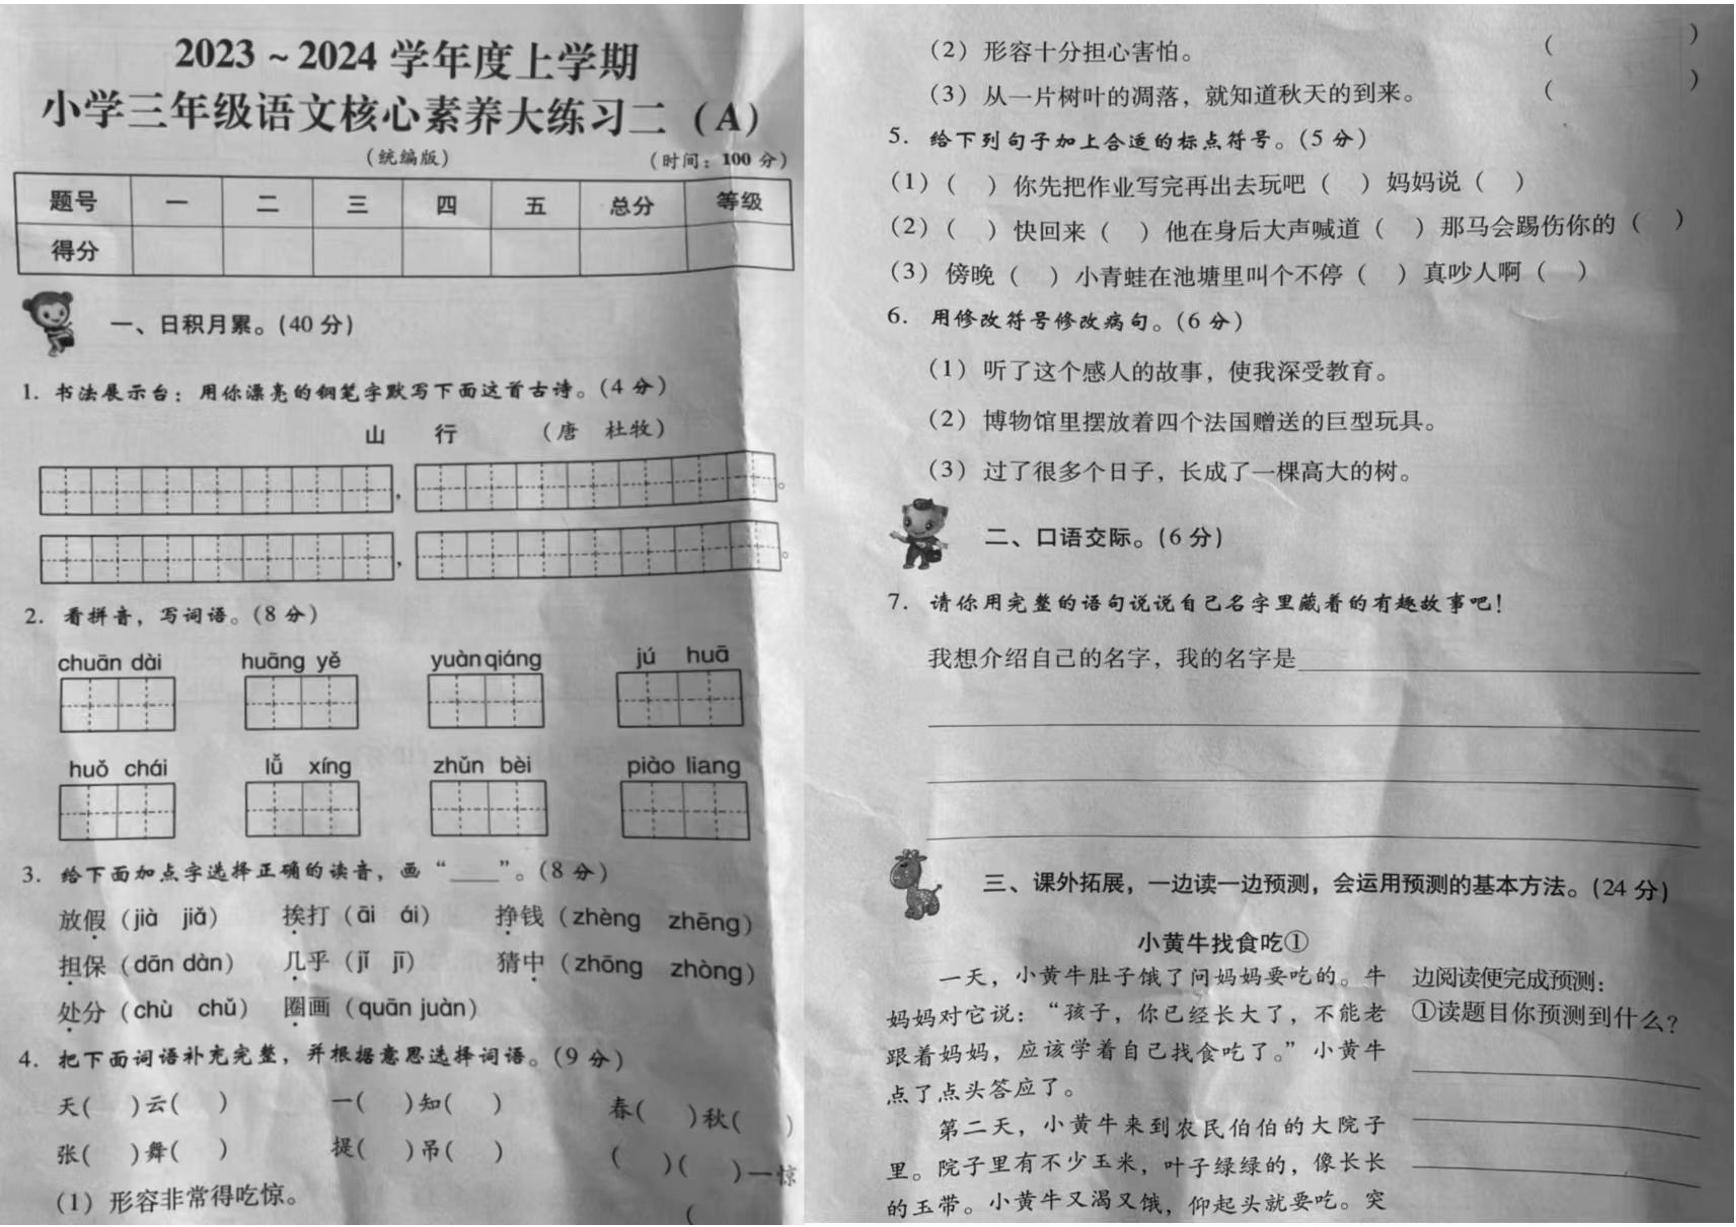 2023～2024 学年度上学期
小学三年级语文核心素养大练习二（A）
（统编版）	（时间：100 分）
题号 一 二 三 四 五 总分 等级
得分
一、日积月累。（40 分）
1. 书法展示台：用你漂亮的钢笔字默写下面这首古诗。（4 分）
山 行 （唐 杜牧）
，。
，。
2. 看拼音，写词语。（8 分）
chuān dài huāng yě yuàn qiáng jú huā
huǒ chái lǚ xíng zhǔn bèi piào liang
3. 给下面加点字选择正确的读音，画“____”。（8 分）
放假（jià jiǎ） 挨打（āi ái） 挣钱（zhèng zhēng）
担保（dān dàn） 几乎（jǐ jī） 猜中（zhōng zhòng）
处分（chù chǔ） 圈画（quān juàn）
4. 把下面词语补充完整，并根据意思选择词语。（9 分）
天( )云( ) 一( )知( ) 春( )秋( )
张( )舞( ) 提( )吊( ) ( )( )一惊
（1）形容非常得吃惊。 (
（2）形容十分担心害怕。 ( )
（3）从一片树叶的凋落，就知道秋天的到来。 ( )
5. 给下列句子加上合适的标点符号。（5 分）
（1）（ ）你先把作业写完再出去玩吧（ ）妈妈说（ ）
（2）（ ）快回来（ ）他在身后大声喊道（ ）那马会踢伤你的（ ）
（3）傍晚（ ）小青蛙在池塘里叫个不停（ ）真吵人啊（ ）
6. 用修改符号修改病句。（6 分）
（1）听了这个感人的故事，使我深受教育。
（2）博物馆里摆放着四个法国赠送的巨型玩具。
（3）过了很多个日子，长成了一棵高大的树。
二、口语交际。（6 分）
7. 请你用完整的语句说说自己名字里藏着的有趣故事吧！
我想介绍自己的名字，我的名字是
三、课外拓展，一边读一边预测，会运用预测的基本方法。（24 分）
小黄牛找食吃①
一天，小黄牛肚子饿了问妈妈要吃的。牛
妈妈对它说：“孩子，你已经长大了，不能老
跟着妈妈，应该学着自己找食吃了。”小黄牛
点了点头答应了。
第二天，小黄牛来到农民伯伯的大院子
里。院子里有不少玉米，叶子绿绿的，像长长
的玉带。小黄牛又渴又饿，仰起头就要吃。突
边阅读便完成预测：
①读题目你预测到什么？